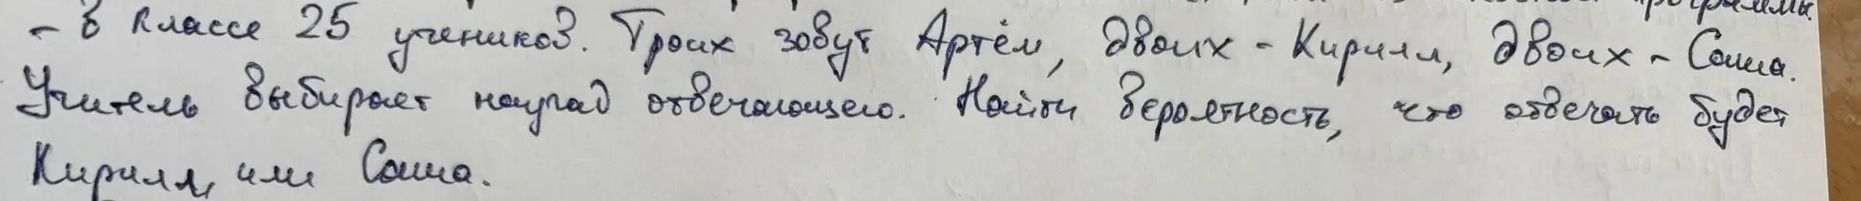 программы.
- В классе 25 учеников. Троих зовут Артём, двоих - Кирилл, двоих - Саша.
Учитель выбирает наугад отвечающего. Найти вероятность, что отвечать будет
Кирилл или Саша.